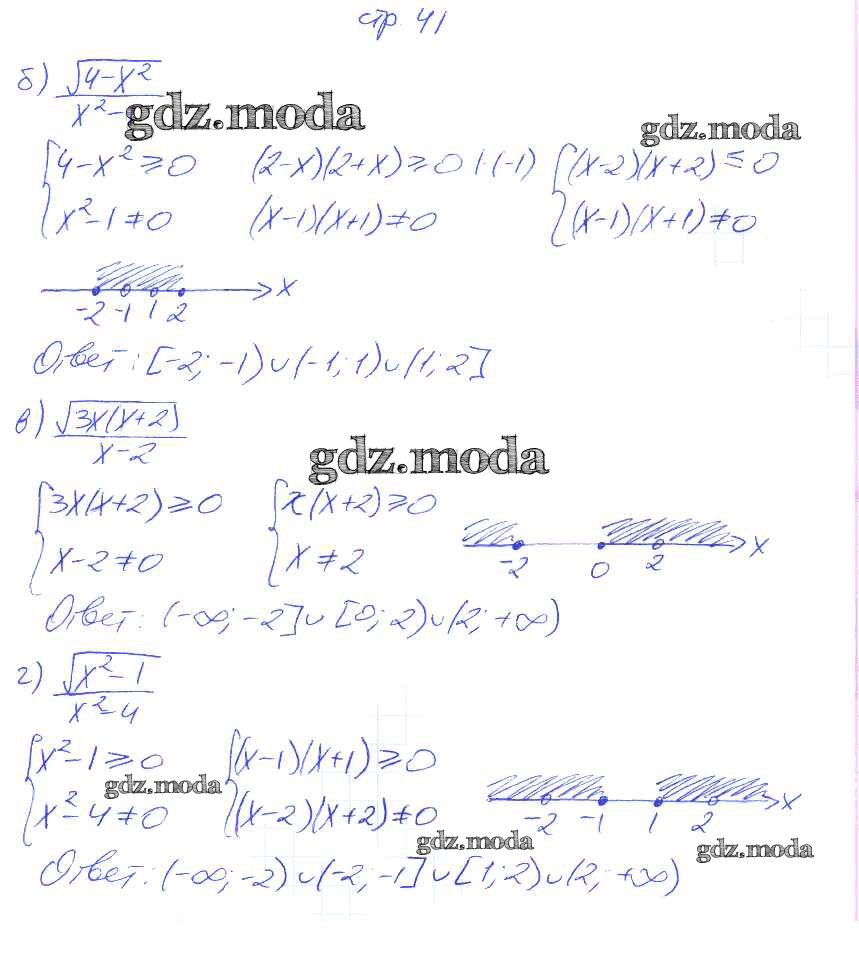 стр. 41
б) √(4-x²)
x²-
gdz.moda
gdz.moda
{4-x²≥0 (2-x)(2+x)≥0 |·(-1) {(x-2)(x+2)≤0
x²-1≠0 (x-1)(x+1)≠0 (x-1)(x+1)≠0
x
-2 -1 1 2
Ответ: [-2; -1)∪(-1; 1)∪(1; 2]
в) √(3x(x+2))
x-2
gdz.moda
{3x(x+2)≥0 {x(x+2)≥0
x-2≠0 x≠2
x
-2 0 2
Ответ: (-∞; -2]∪[0; 2)∪(2; +∞)
г) √(x²-1)
x²-4
{x²-1≥0 {(x-1)(x+1)≥0
gdz.moda
x²-4≠0 (x-2)(x+2)≠0
x
-2 -1 1 2
gdz.moda
gdz.moda
Ответ: (-∞; -2)∪(-2; -1]∪[1; 2)∪(2; +∞)